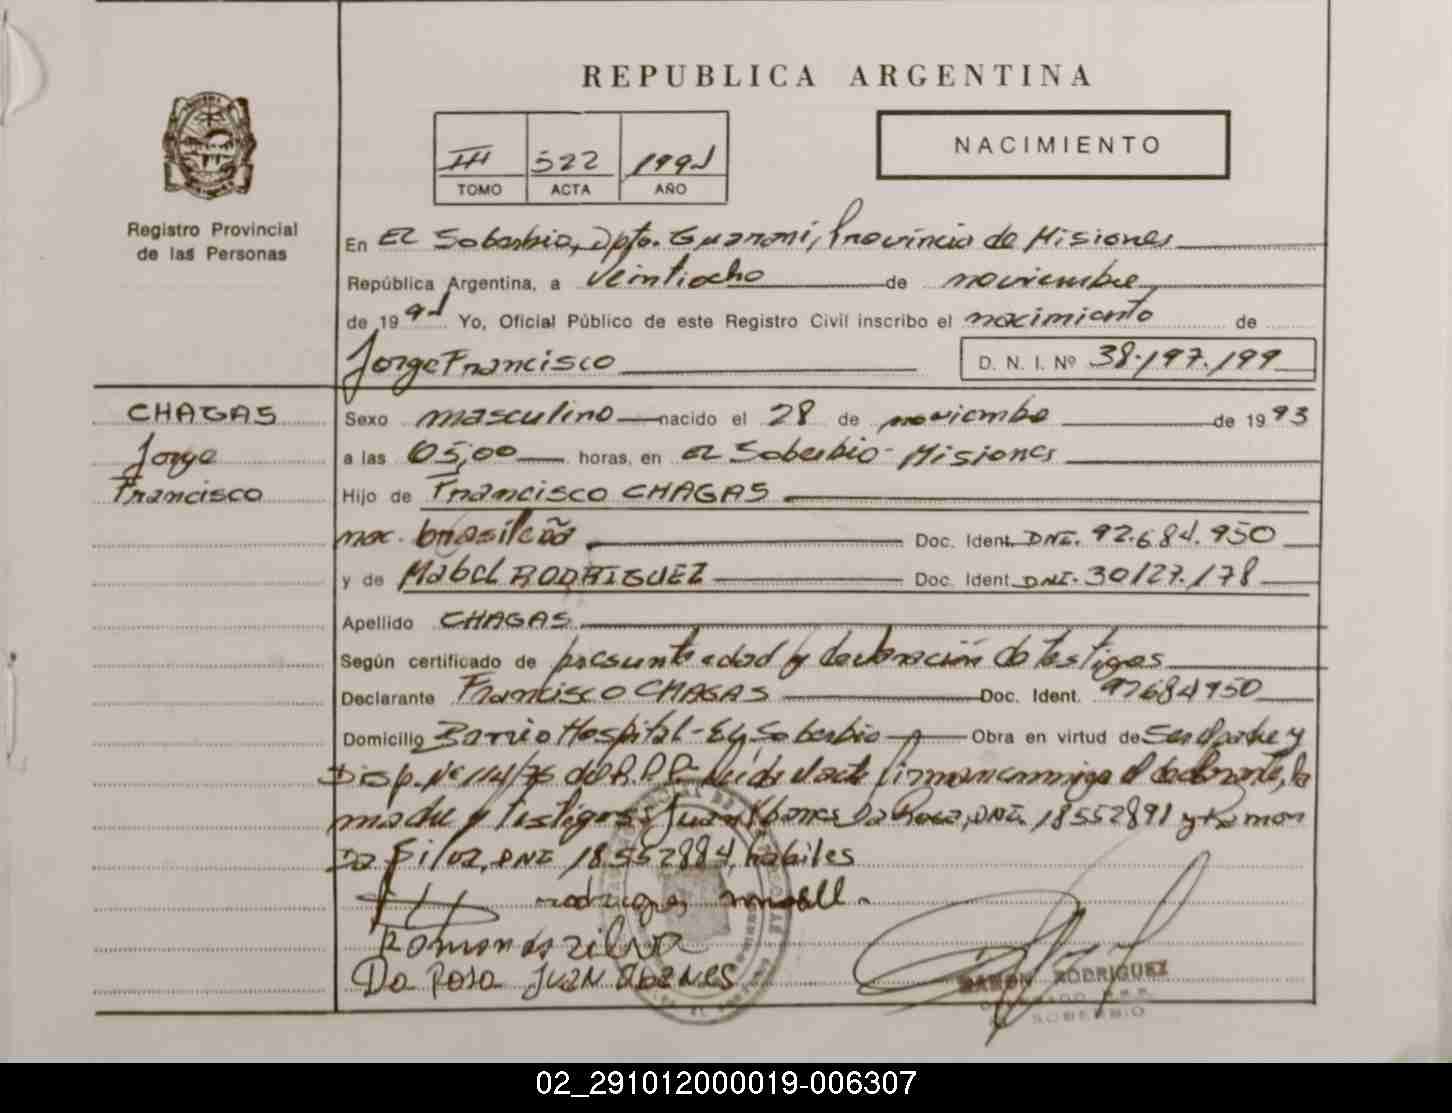 REPUBLICA ARGENTINA
NACIMIENTO
III 522 1994
TOMO ACTA AÑO
Registro Provincial
de las Personas
En El Soberbio, Dpto. Guaraní, Provincia de Misiones
República Argentina, a veintiocho de noviembre
de 1994 Yo, Oficial Público de este Registro Civil inscribo el nacimiento de
Jorge Francisco D. N. I. Nº 38.197.199
CHAGAS
Jorge
Francisco
Sexo masculino nacido el 28 de noviembre de 1993
a las 05,00 horas, en El Soberbio - Misiones
Hijo de Francisco CHAGAS
nac. brasileña Doc. Ident. DNI. 92.684.950
y de Mabel RODRIGUEZ Doc. Ident. DNI. 30127.178
Apellido CHAGAS
Según certificado de presunta edad y declaración de testigos
Declarante Francisco CHAGAS Doc. Ident. 92684950
Domicilio Barrio Hospital - El Soberbio Obra en virtud de Ser Padre y
Disp. Nº 114/76 del R.P.P. Leida el acta firman conmigo el declarante, la
madre y testigos: Juan Da Rosa, DNI. 18552891 y Ramon
Da Silva, DNI 18.552884, hábiles
rodriguez
Ramon da silva
Da Rosa JUAN
RAMON RODRIGUEZ
SOBERBIO
02_291012000019-006307